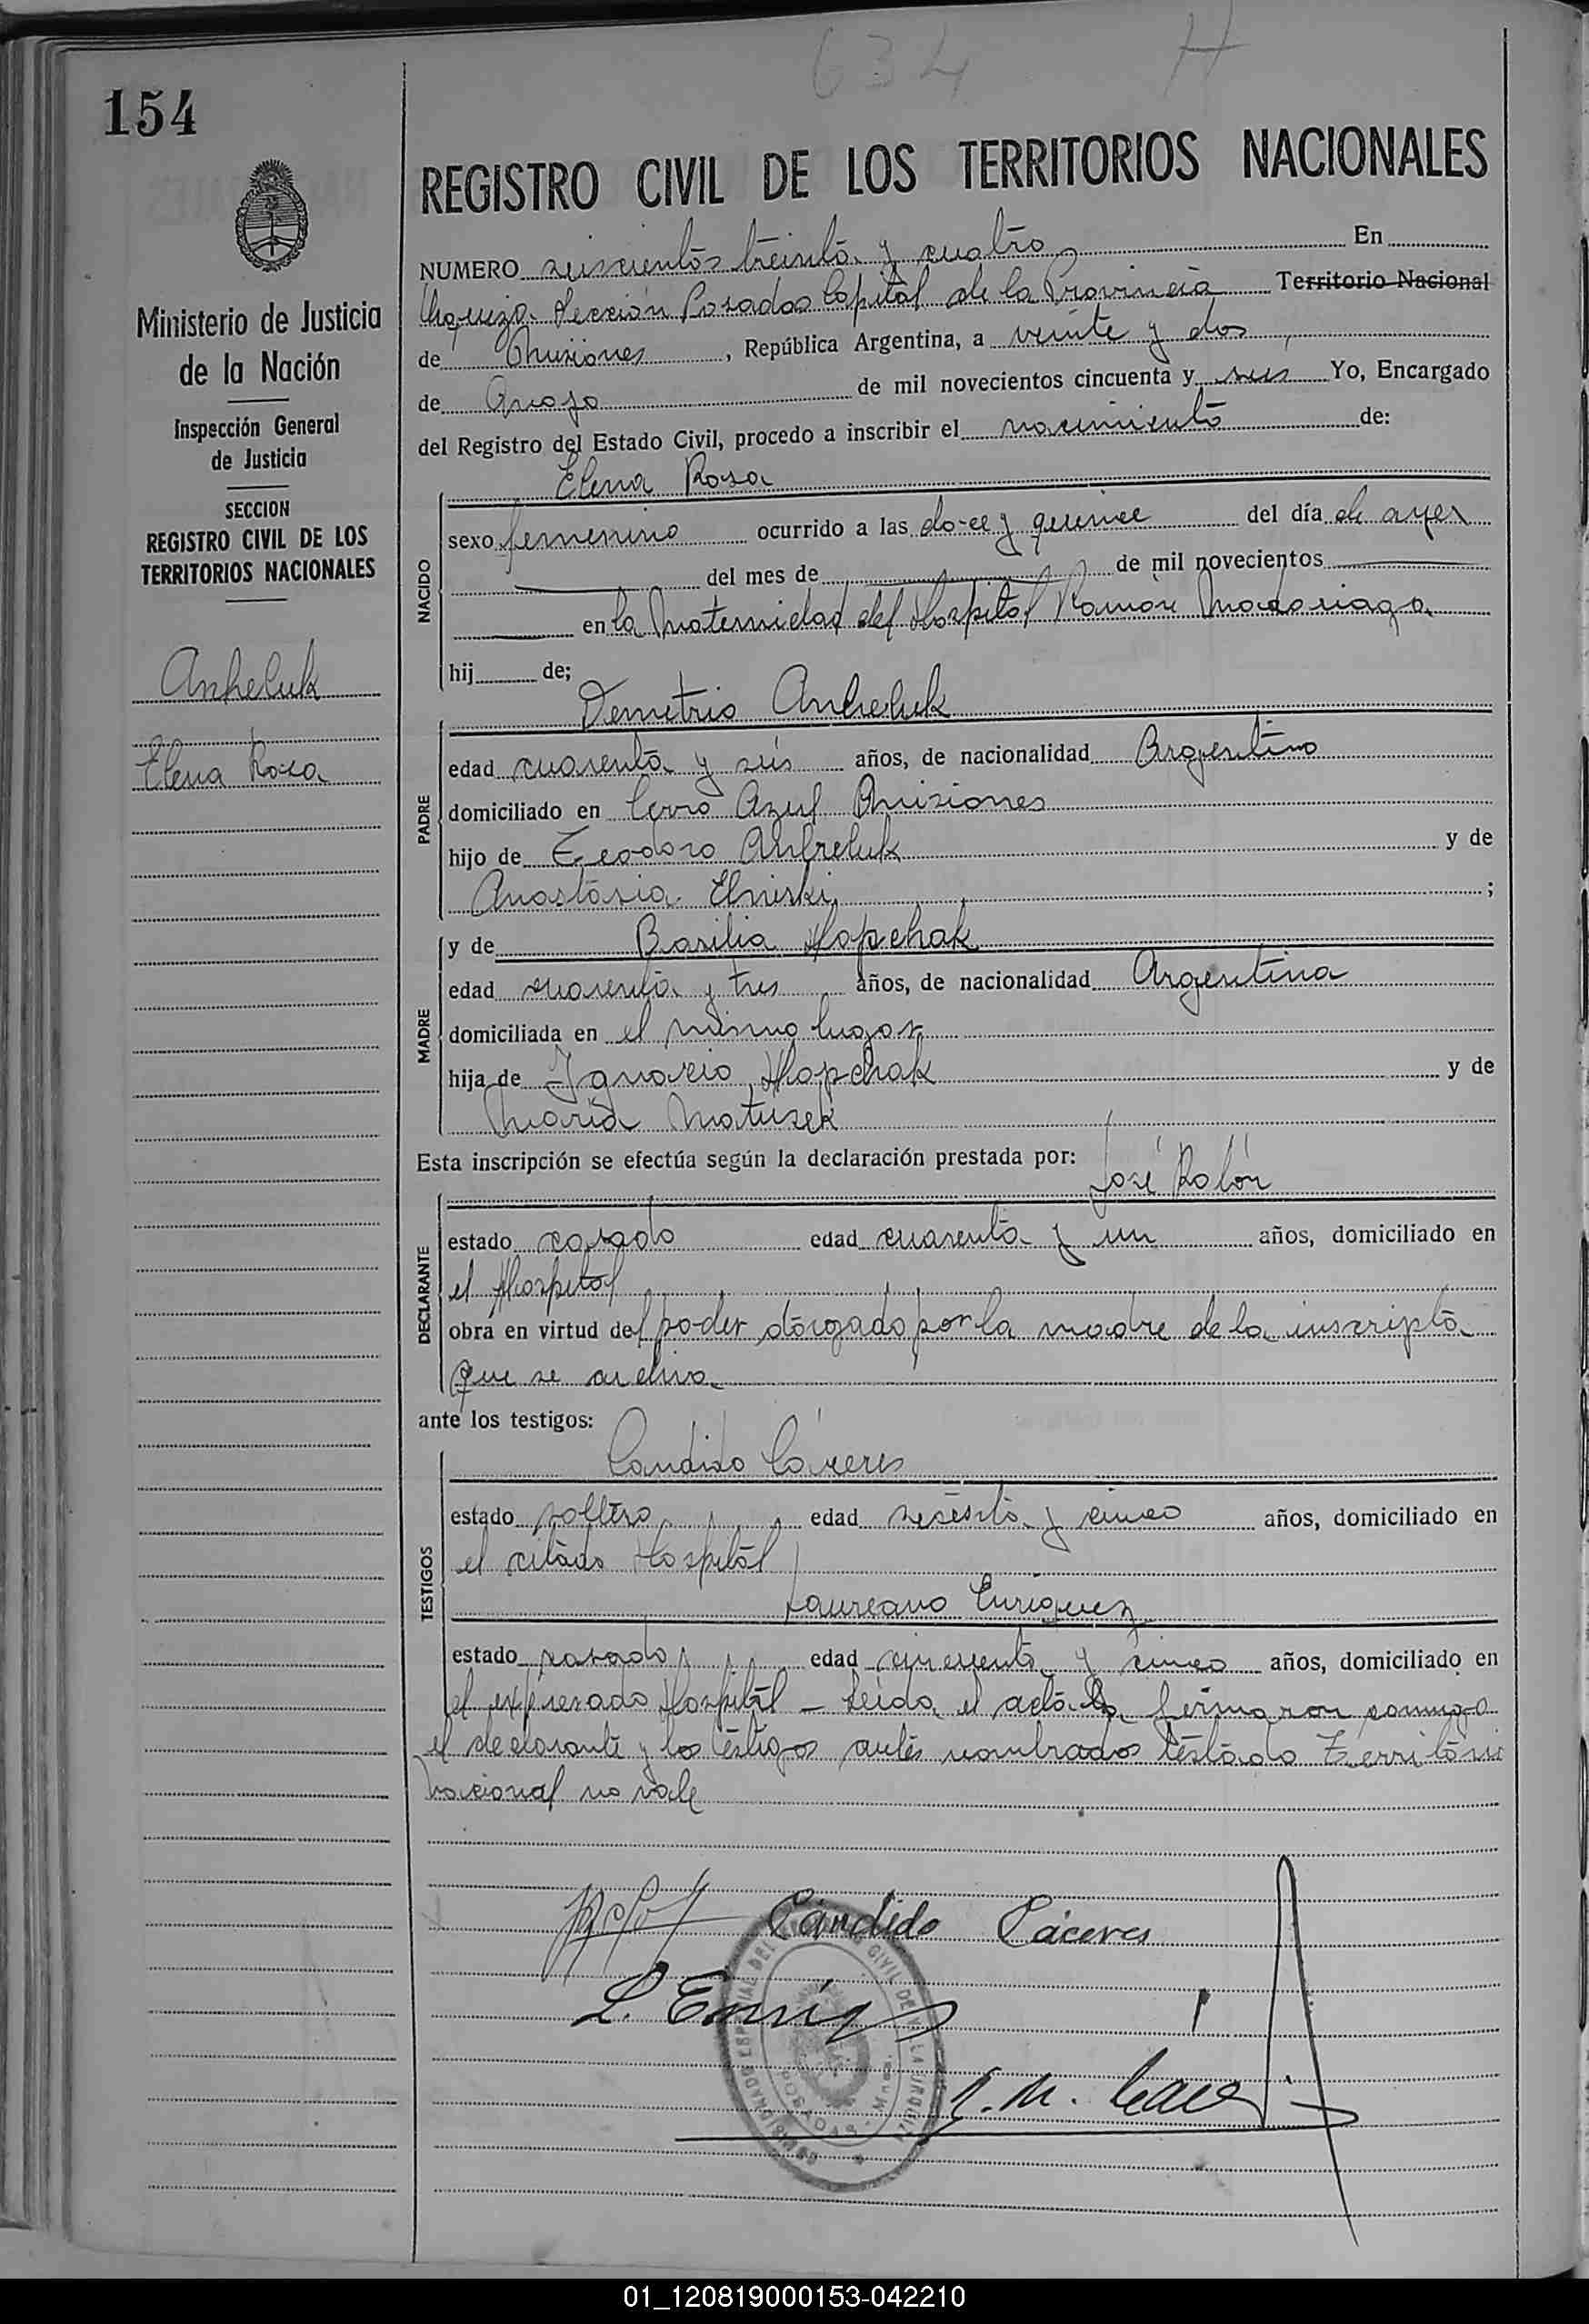 634 H
154
REGISTRO CIVIL DE LOS TERRITORIOS NACIONALES
NUMERO seiscientos treinta y cuatro En
Urquiza Sección Posadas Capital de la Provincia Territorio Nacional
de Misiones, República Argentina, a veinte y dos
de Mayo de mil novecientos cincuenta y seis Yo, Encargado
del Registro del Estado Civil, procedo a inscribir el nacimiento de:
Ministerio de Justicia
de la Nación
Inspección General
de Justicia
SECCION
REGISTRO CIVIL DE LOS
TERRITORIOS NACIONALES
Anheluk
Elena Rosa
NACIDO
Elena Rosa
sexo femenino ocurrido a las doce y quince del día de ayer
del mes de de mil novecientos
en la Maternidad del Hospital Ramón Madariaga
hij de;
PADRE
Demetrio Anheluk
edad cuarenta y seis años, de nacionalidad Argentino
domiciliado en Cerro Azul Misiones
hijo de Teodoro Anheluk y de
Anastasia ;
MADRE
y de Basilia Hopchak
edad cuarenta y tres años, de nacionalidad Argentina
domiciliada en el mismo lugar
hija de Ignacio Hopchak y de
María Matusek
Esta inscripción se efectúa según la declaración prestada por:
José Rolón
DECLARANTE
estado casado edad cuarenta y un años, domiciliado en
el Hospital
obra en virtud del poder otorgado por la madre de la inscripta
que se archiva
ante los testigos:
TESTIGOS
Candido Cáceres
estado soltero edad sesenta y cinco años, domiciliado en
el citado Hospital
Laureano Enriquez
estado casado edad cincuenta y cinco años, domiciliado en
el expresado Hospital - Leida el acta la firmaron conmigo
el declarante y los testigos antes nombrados testado Territorio
Nacional no vale
Cándido Cáceres
L. Enriq
POSADAS - Mnes.
01_120819000153-042210